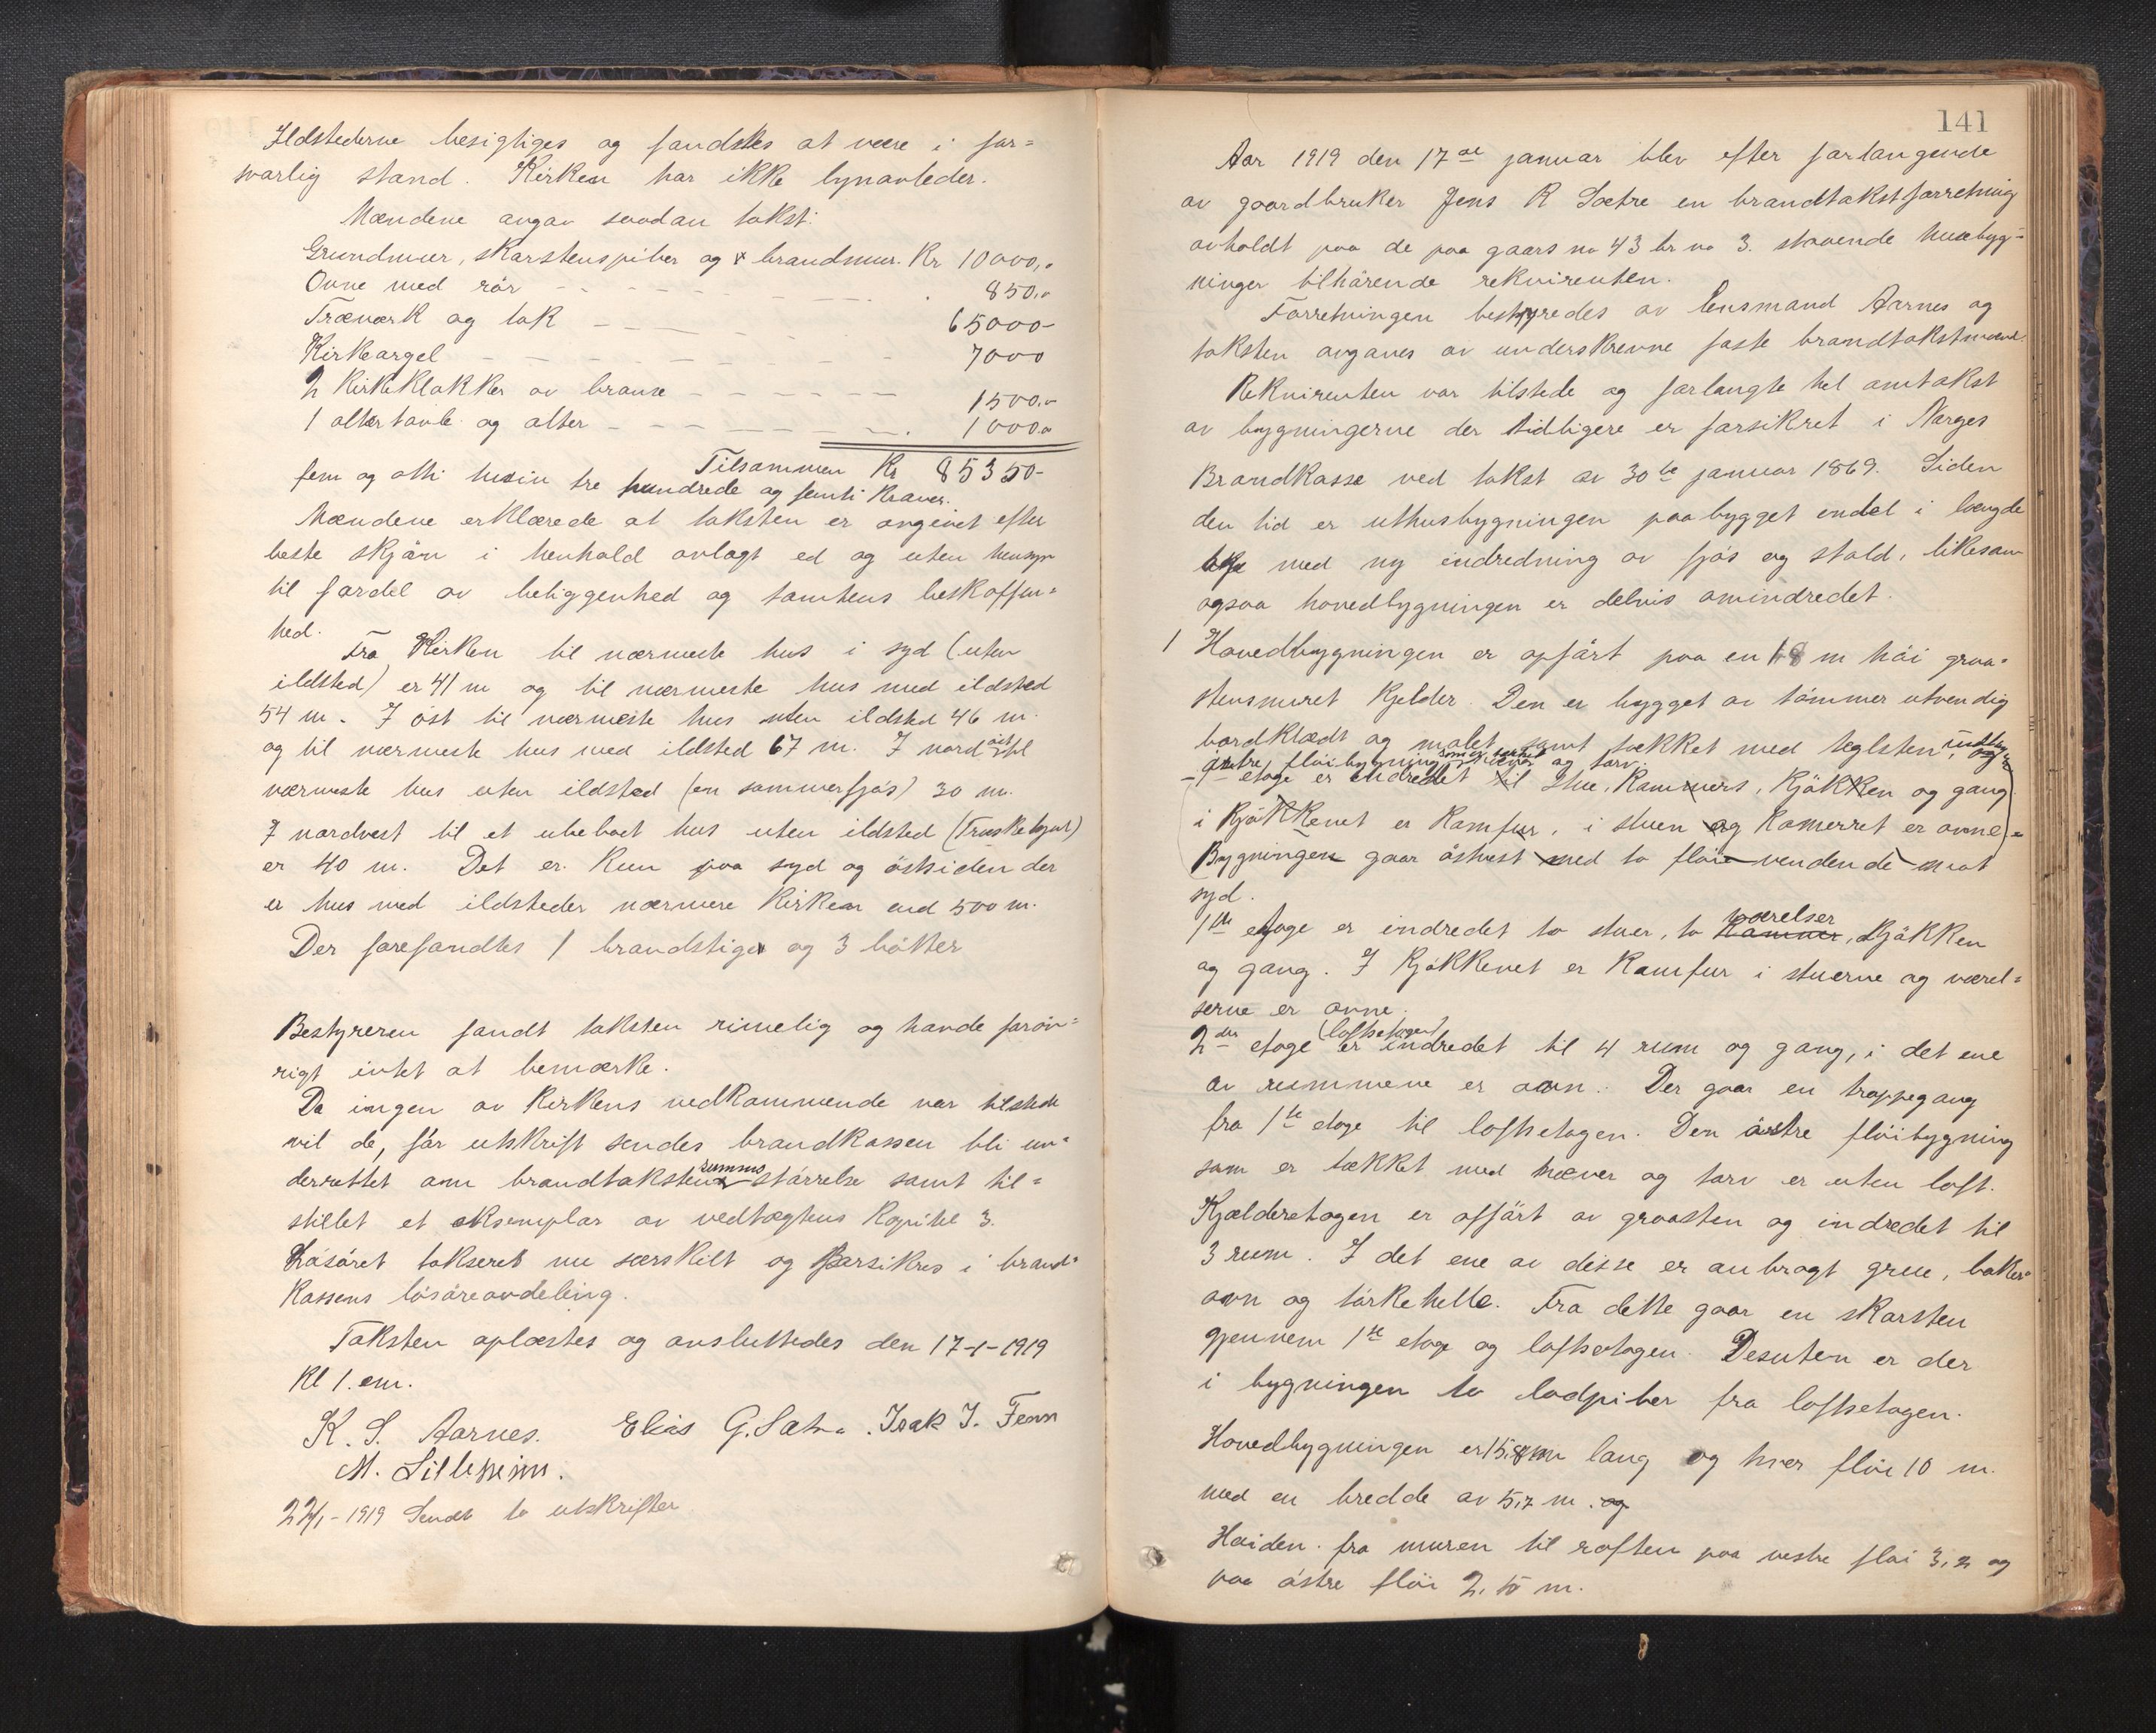 Ildstederne besigtiges og fandtes at være i for=
svarlig stand. Kirken har ikke lynavleder.
Mændene avgav saadan takst:
Grundmur, skorstenspiber og brandmur. Kr 10000,-
Ovne med rör - - - 850,-
Træværk og tak - - - 65000-
Kirkeorgel - - - 7000
2 Kirkeklokker av bronse - - - 1500.-
1 altertavle og alter - - - 1000.-
Tilsammen Kr 85350-
fem og otti tusin tre hundrede og femti Kroner.
Mændene erklærede at taksten er avgivet efter
beste skjön i henhold avlagt ed og uten hensyn
til fordel av beliggenhed og tomtens beskaffen=
hed.
Fra Kirken til nærmeste hus i syd (uten
ildsted) er 41 m og til nærmeste hus med ildsted
54 m. I öst til nærmeste hus uten ildsted 46 m.
og til nærmeste hus med ildsted 67 m. I nord öst til
nærmeste hus uten ildsted (en sommerfjös) 30 m.
I nordvest til et ubeboet hus uten ildsted
er 40 m. Det er kun paa syd og östsiden der
er hus med ildsteder nærmere Kirken end 500 m.
Der forefandtes 1 brandstige og 3 bötter
Bestyreren fandt taksten rimelig og havde foröv=
rigt intet at bemærke.
Da ingen av Kirkens vedkommende var tilstede
vil de, för utskrift sendes brandkassen bli un=
derrettet om brandtakstens summs störrelse samt til=
stillet et eksemplar av vedtægtens Kapitel 3.
Lösöret takseret nu særskilt og forsikres i brand=
kassens lösöreavdeling.
Taksten oplæstes og avsluttedes den 17-1-1919
Kl 1. em.
K. S. Aarnes. Elias G. Sætre. Isak J. Fenn
M. Lillesim.
22/1-1919 Sendt to utskrifter

141
Aar 1919 den 17de januar blev efter forlangende
av gaardbruker Jens R Sætre en brandtakstforretning
avholdt paa de paa gaars no 43 br no 3. staaende husbyg=
ninger tilhörende rekvirenten.
Forretningen bestyredes av lensmand Aarnes og
taksten avgaves av underskrevne faste brandtakstmænd.
Rekvirenten var tilstede og forlangte hel omtakst
av bygningerne der tidligere er forsikret i Norges
Brandkasse ved takst av 30te januar 1869. Siden
den tid er uthusbygningen paabygget endel i længde
med ny indredning av fjös og stald, likesom
ogsaa hovedbygningen er delvis omindredet.
1 Hovedbygningen er opfört paa en 1,8 m höi graa=
stensmuret Kjelder. Den er bygget av tömmer utvendig
bordklædt og malet samt tækket med teglsten, undtagen
östre flöibygning som er tækket næver og torv.
etage er indredet til stue, Kammers, Kjökken og gang
i Kjökkenet er Komfur, i stuen og Kamerret er ovne
Bygningen gaar östvest med to flöie vendende mot
syd.
1ste etage er indredet to stuer, to Kammer værelser, Kjökken
og gang. I Kjökkenet er Komfur i stuerne og værel=
serne er ovne.
2den etage (loftsetagen) er indredet til 4 rum og gang, i det ene
av rummene er ovn. Der gaar en trappegang
fra 1ste etage til loftsetagen. Den östre flöibygning
som er tækket med næver og torv er uten loft.
Kjælderetagen er opfört av graasten og indredet til
3 rum. I det ene av disse er anbragt grue, baker=
ovn og törkehelle. Fra dette gaar en skorsten
gjennem 1ste etage og loftsetagen. Desuten er der
i bygningen to lodpiber fra loftsetagen.
Hovedbygningen er 15,8 m lang og hver flöi 10 m.
med en bredde av 5,7 m. og
Höiden fra muren til roften paa vestre flöi 3,2 og
paa östre flöi 2,15 m.